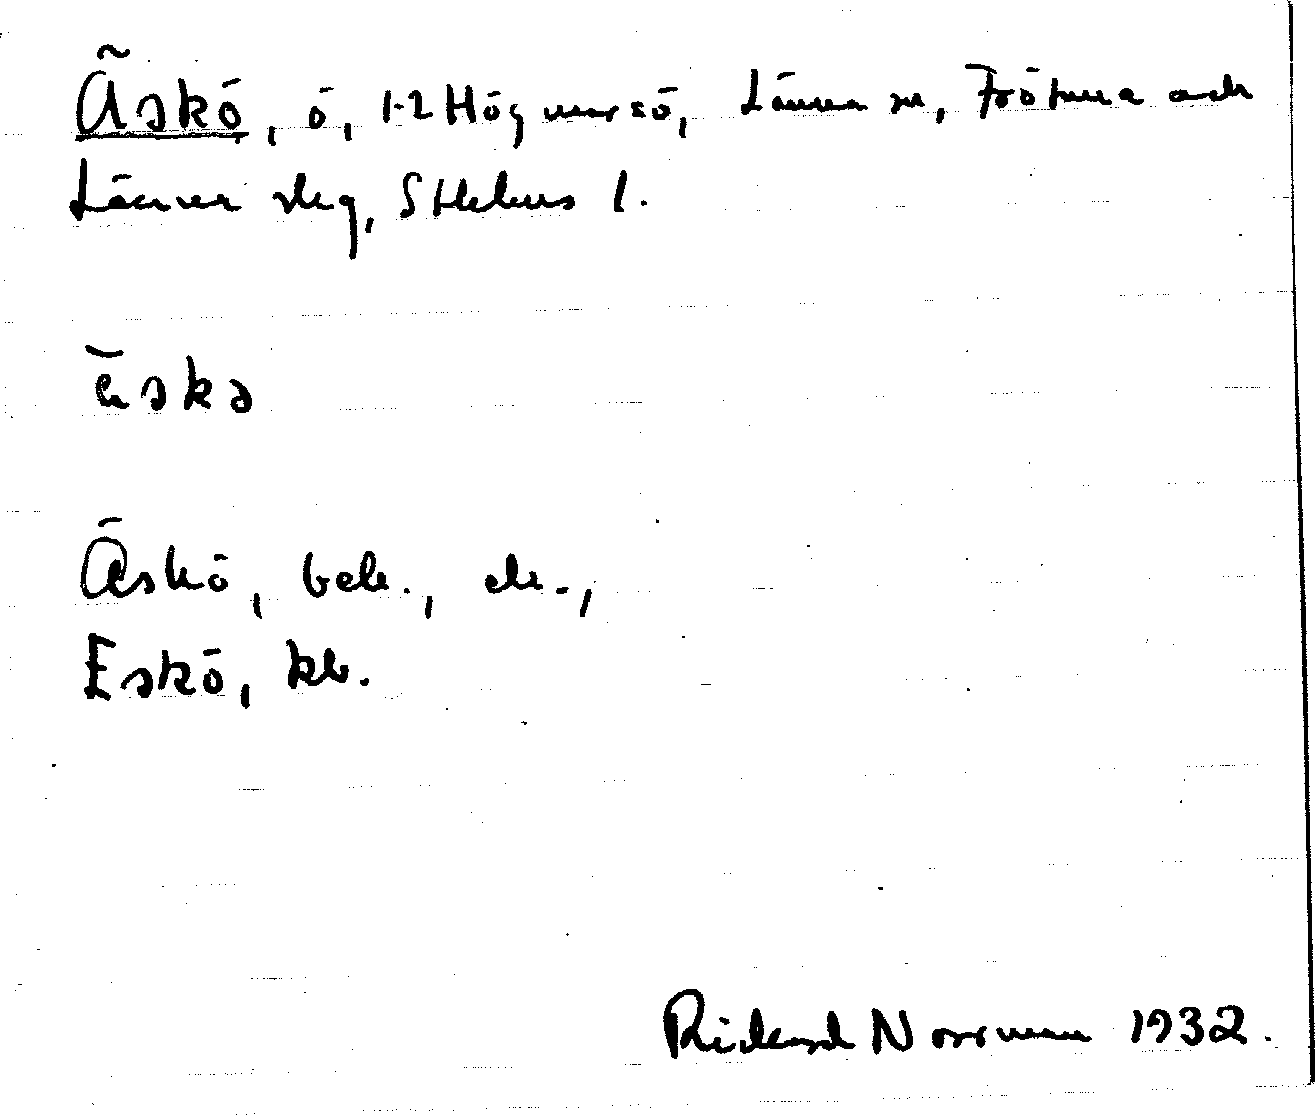 Äskö, ö, 1-2 Högmarsö, Länna sn, Frötuna och
Länna skg, Sthlms l.
äskə
Äskö, bek., ek.,
Eskö, kb.
Rickard Norrman 1932.